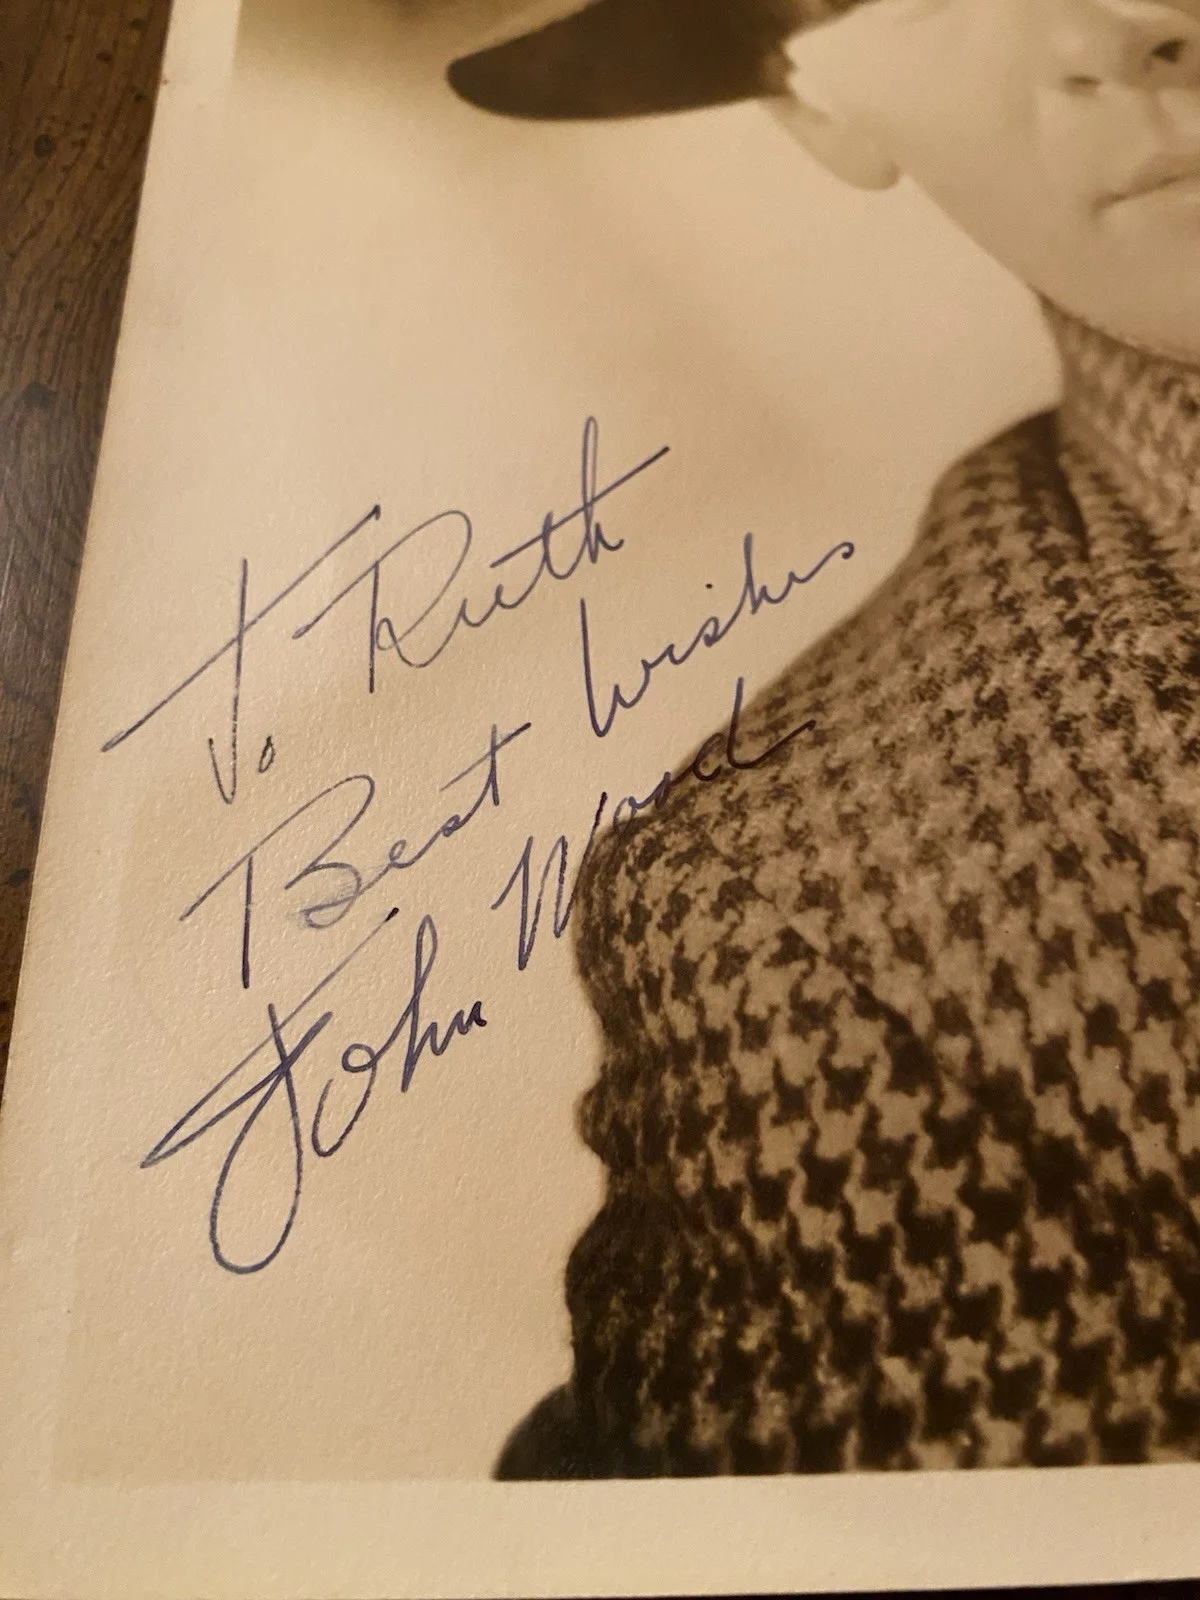 To Ruth
Best Wishes
John Wood